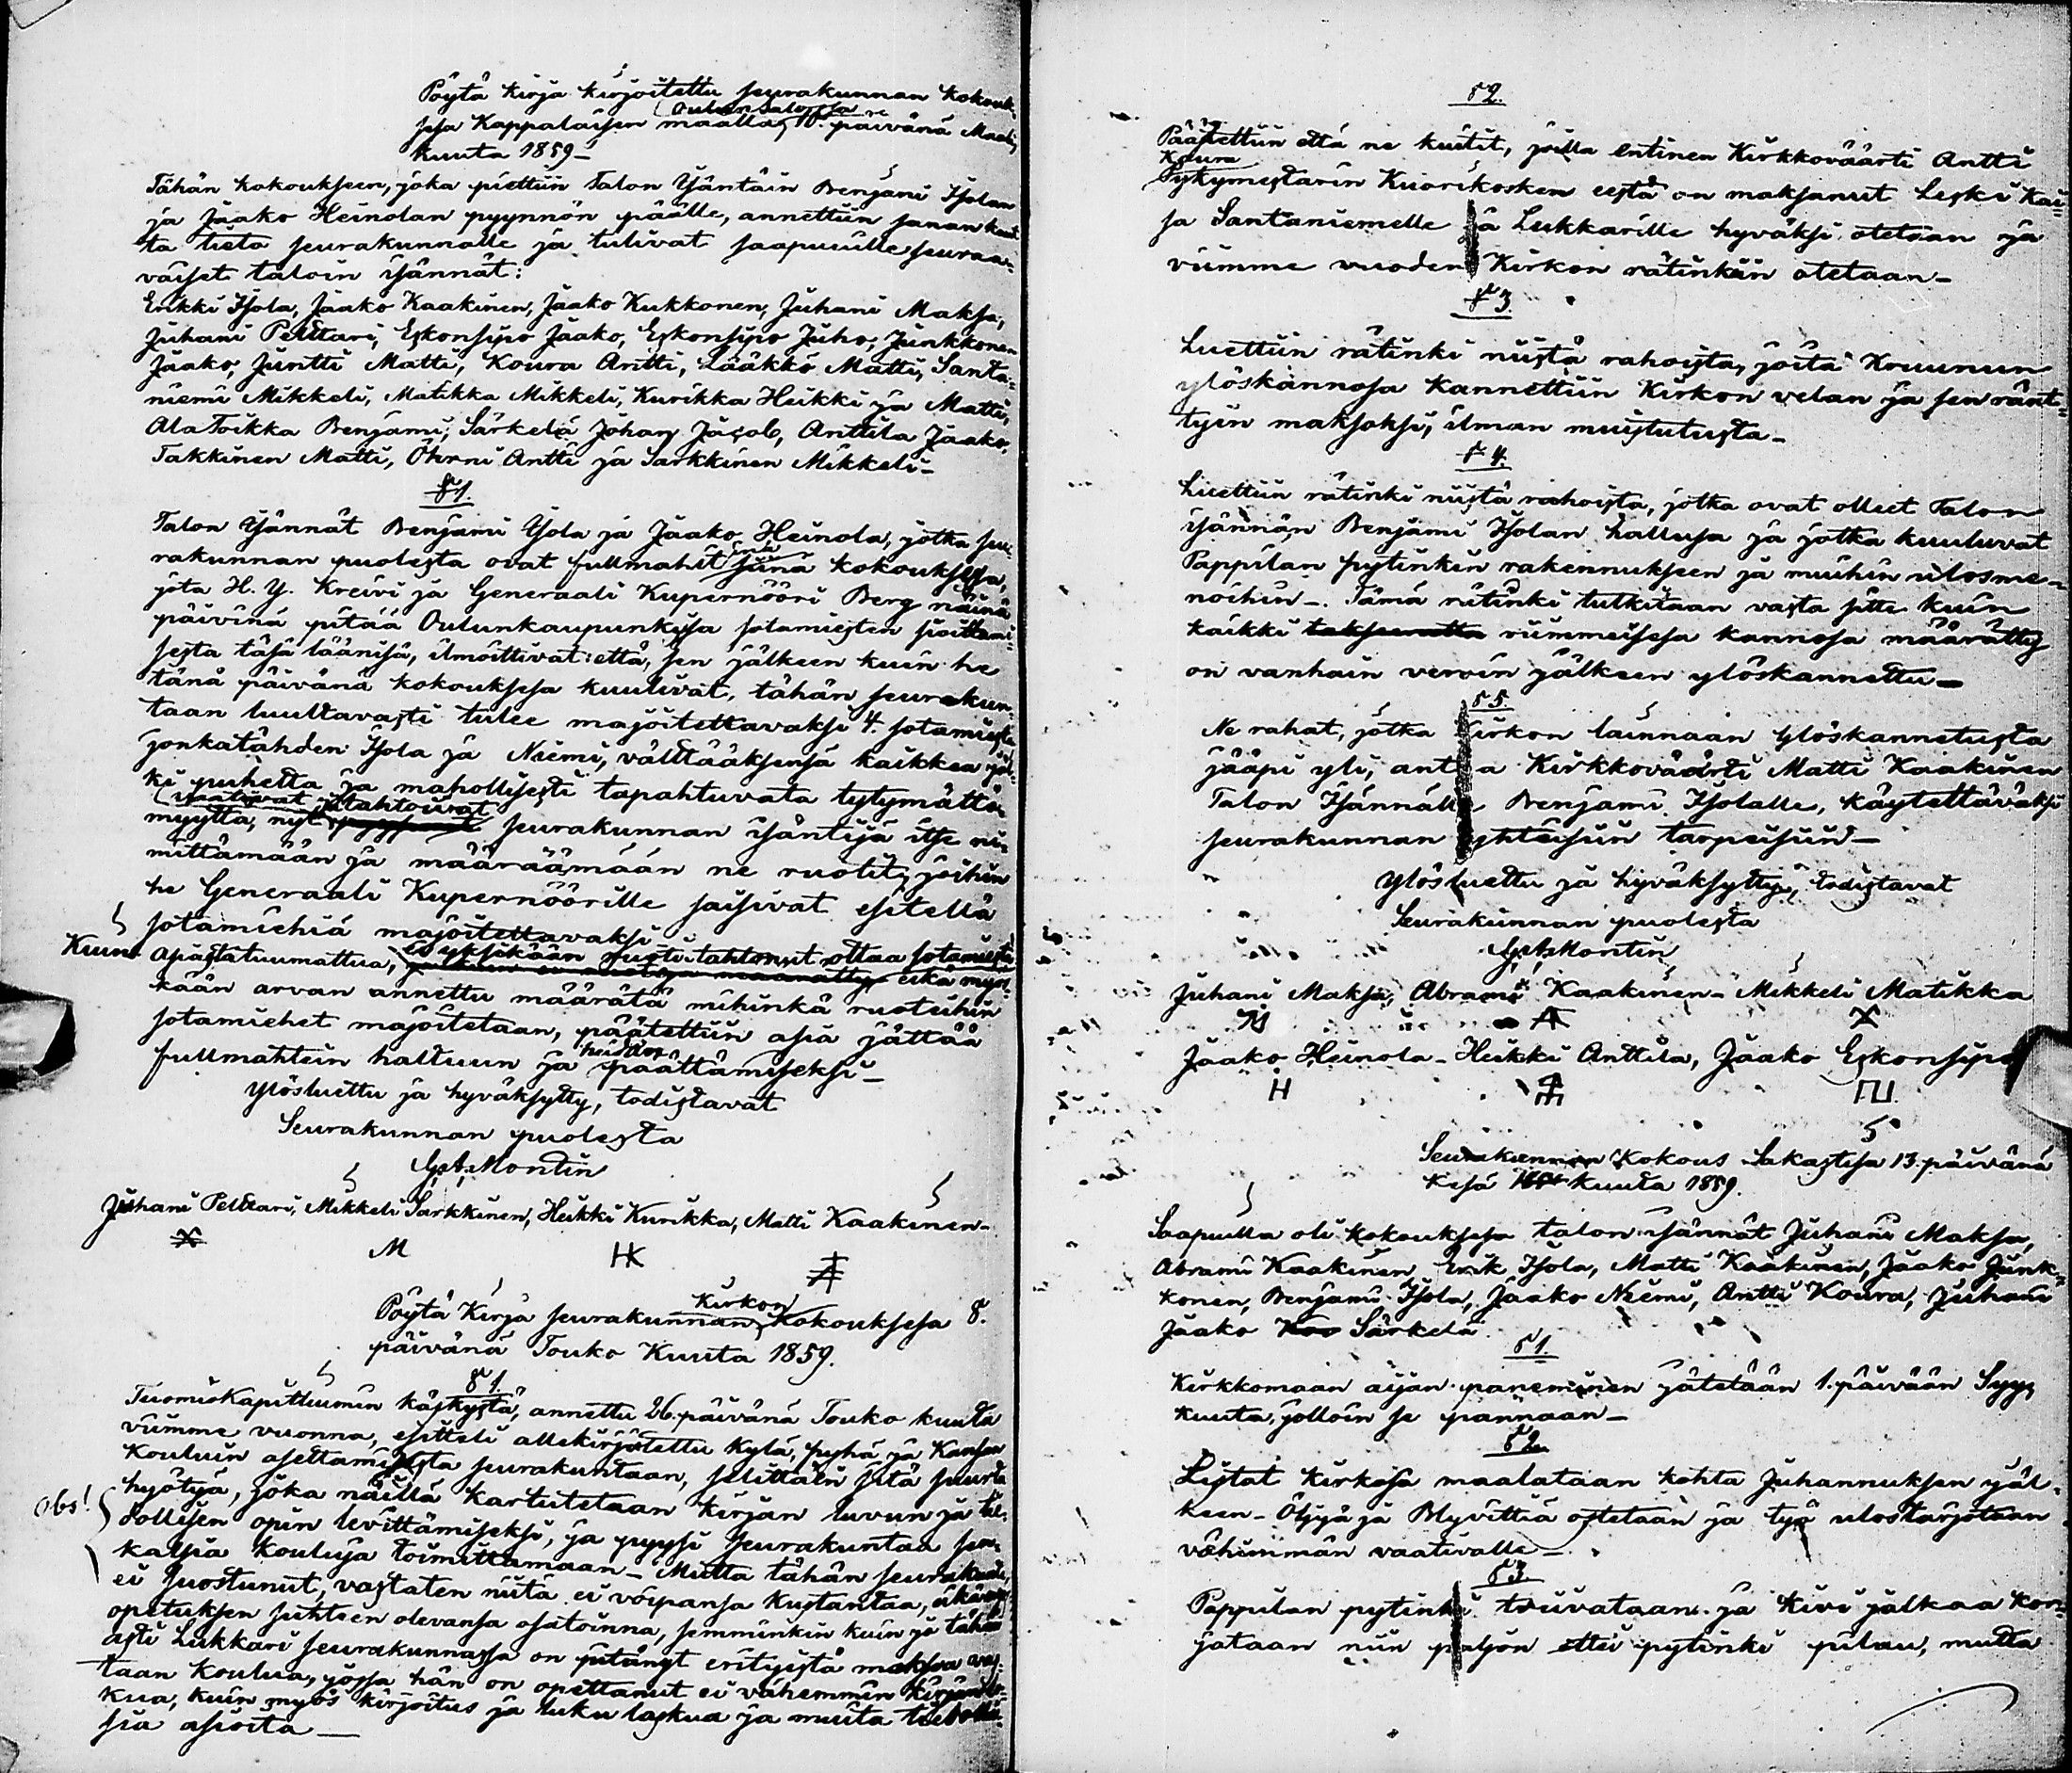 Pöytä kirja kirjoitettu seurakunnan kokouk-
sesa Kappalaisen maalla, Oulunsalossa 10. päivänä Maalis
kuuta 1859-
Tähän kokoukseen, joka piettiin Talon Isäntäin Benjami Isolan
ja Jaako Heinolan pyynnön päälle, annettiin sanan kaut-
ta tieto seurakunnalle ja tulivat saapuville seuraa-
vaiset taloin isännät:
Erikki Isola, Jaako Kaakinen, Jaako Kukkonen, Juhani Maksa,
Juhani Pelttari, Eskonsipo Jaako, Eskonsipo Juho, Junkkonen
Jaako, Juntti Matti, Koura Antti, Lääkkö Matti, Santa-
niemi Mikkeli, Matikka Mikkeli, Kurikka Heikki ja Matti,
AlaToikka Benjami, Särkelä Johan Jacob, Anttila Jaako,
Takkinen Matti, Öhrni Antti ja Sarkkinen Mikkeli-
§ 1.
Talon Isännät Benjami Isola ja Jaako Heinola, jotka seu-
rakunnan puolesta ovat fullmahtit siinä kokouksessa,
jota H. Y. Kreivi ja Generaali Kupernööri Berg näinä
päivinä pitää Oulunkaupunkissa sotamiesten sioittami-
sesta täsä läänisä, ilmoittivat että, sen jälkeen kuin he
tänä päivänä kokouksesa kuulivat, tähän seurakun-
taan luultavasti tulee majoitettavaksi 4. sotamiestä
jonkatähden Isola ja Niemi, välttääksensä kaikkea jäl-
ki puhetta ja mahollisesti tapahtuvata tytymättö-
myyttä, nyt vaativat ja tahtoivat seurakunnan isäntijä itse ni-
mittämään ja määräämään ne ruotit, joihin
he Generaali Kupernöörille saisivat esitellä
sotamiehiä majoitettavaksi-
Kuin apästatuumattua, ei yksikään ruoti tahtonut ottaa sotamiestä eikä myös-
kään arvan annettu määrätä mihinkä ruoteihin
sotamiehet majoitetaan, päätettiin asia jättää
fullmahtein haltuun ja heidän päättämiseksi-
Ylösluettu ja hyväksytty, todistavat
Seurakunnan puolesta
G. A. Montin
Juhani Pelttari, Mikkeli Sarkkinen, Heikki Kurikka, Matti Kaakinen-
M HK
Pöytä Kirja seurakunnan, Kirkon Kokouksesa 8.
päivänä Touko Kuuta 1859.
§ 1.
Tuomiokapittuumin käskystä, annettu 26. päivänä Touko kuuta
viimme vuonna, esitteli allekirjotettu kylä, pyhä ja Kansan
kouluin asettamisesta seurakuntaan, selittäin sitä suurta
hyötyä, joka näillä kartutetaan kirjan luvun ja tie-
dollisen opin levittämiseksi, ja pyysi seurakuntaa sen-
kalsia kouluja toimittamaan- Mutta tähän seurakunta
ei suostunut, vastaten niitä ei voipansa kustantaa, eikä
opetuksen suhteen olevansa osatoinna, semminkin kuin jo tähän
asti Lukkari seurakunnassa on pitänyt erityistä maksoa
taan koulua, jossa hän on opettanut ei vähemmin kirjan lu-
kua, kuin myös kirjoitus ja luku laskua ja muita tiedolli-
sia asioita-
obs!
§ 2.
Päätettiin että ne kuitit, joilla entinen Kirkkoväärti Antti
Koura Tykymestarin Kuorikosken eestä on maksanut Leski Kai-
sa Santaniemelle ja Lukkarille hyväksi otetaan ja
viimme vuoden Kirkon rätinkiin otetaan-
§ 3.
Luettiin rätinki niistä rahoista, joita Kruunun
ylöskannosa kannettiin Kirkon velan ja sen ränt-
tyin maksoksi, ilman muistutusta-
§ 4.
Luettiin rätinki niistä rahoista, jotka ovat olleet Talon
Isännän Benjami Isolan hallusa ja jotka kuuluvat
Pappilan pytinkin rakennukseen ja muihin ulosme-
noihin-. Tämä rätinki tutkitaan vasta sitte kuin
kaikki viimmeisesä kannosa määrätty
on vanhain veroin jälkeen ylöskannettu-
§ 5.
Ne rahat, jotka Kirkon lainnaan ylöskannetusta
jääpi yli, antaa Kirkkoväärti Matti Kaakinen
Talon Isännälle Benjami Isolalle, käytettäväksi
seurakunnan yhteisiin tarpeisiin-
Ylösluettu ja hyväksytty, todistavat
Seurakunnan puolesta
G. A. Montin
Juhani Maksa, Abrami Kaakinen- Mikkeli Matikka
Jaako Heinola- Heikki Anttila, Jaako Eskonsipo
H
Seurakunnan Kokous Sakastisa 13. päivänä
Kesä kuuta 1859.
Saapuilla oli kokouksesa talon isännät Juhani Maksa,
Abrami Kaakinen, Erik Isola, Matti Kaakinen, Jaako Junk-
konen, Benjami Isola, Jaako Niemi, Antti Koura, Juhani
Jaako Koo Särkelä.
§ 1.
Kirkkomaan aijan paneminen jätetään 1. päivään Syys
kuuta, jolloin se pannaan-
§ 2.
Listat kirkosa maalataan kohta Juhannuksen jäl-
keen- Öljyä ja Blyvittiä ostetaan ja työ ulostarjotaan
vähimmän vaativalle-
§ 3.
Pappilan pytinki truivataan ja kivi jalkaa kor-
jataan niin paljon että pytinki piilau, mutta